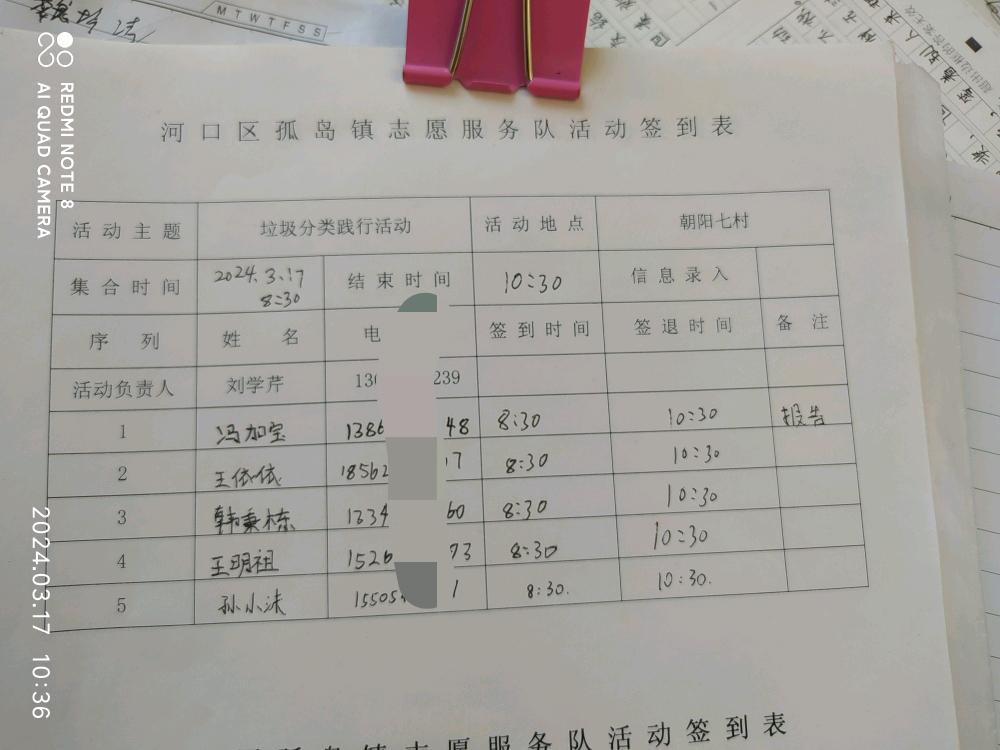 M T W T F S S
REDMI NOTE 8
AI QUAD CAMERA
河口区孤岛镇志愿服务队活动签到表
活动主题 垃圾分类践行活动 活动地点 朝阳七村
集合时间 2024.3.17 8:30 结束时间 10:30 信息录入
序列 姓名 电 签到时间 签退时间 备注
活动负责人 刘学芹 130 239
1 冯加宝 1386 48 8:30 10:30 报告
2 王依依 18562 17 8:30 10:30
3 韩秉栋 1634 60 8:30 10:30
4 王明祖 1526 73 8:30 10:30
5 孙小沫 15505 1 8:30. 10:30.
2024.03.17 10:36
孤岛镇志愿服务队活动签到表